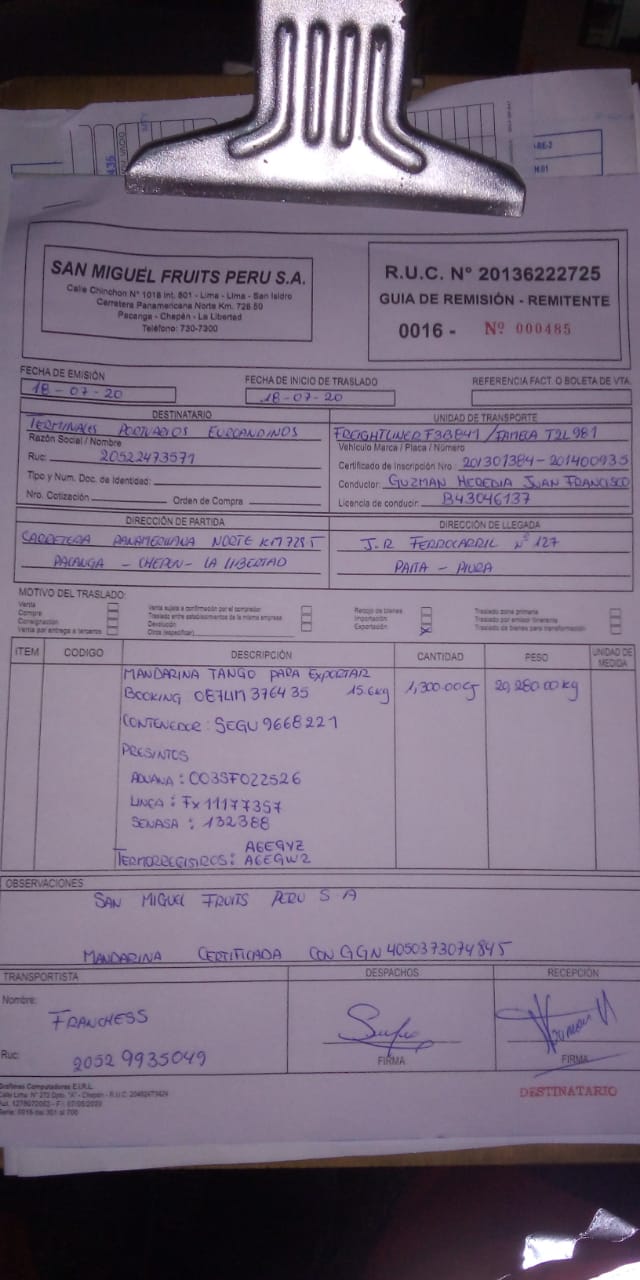 SAN MIGUEL FRUITS PERU S.A.
Calle Chinchon N° 1018 Int. 801 - Lima - Lima - San Isidro
Carretera Panamericana Norte Km. 728.50
Pacanga - Chepén - La Libertad
Teléfono: 730-7300
R.U.C. N° 20136222725
GUIA DE REMISIÓN - REMITENTE
0016 - Nº 000485
FECHA DE EMISIÓN
18-07-20
FECHA DE INICIO DE TRASLADO
18-07-20
REFERENCIA FACT. O BOLETA DE VTA.
DESTINATARIO
TERMINALES PORTUARIOS EUROANDINOS
Razón Social / Nombre
Ruc: 20522473571
Tipo y Num. Doc. de Identidad:
Nro. Cotización Orden de Compra
UNIDAD DE TRANSPORTE
FREIGHTLINER F3B841 / FAMECA T2L981
Vehículo Marca / Placa / Número
Certificado de Inscripción Nro. 201307384-201400935
Conductor: GUZMAN HEREDIA JUAN FRANCISCO
Licencia de conducir: B43046137
DIRECCIÓN DE PARTIDA
CARRETERA PANAMERICANA NORTE KM 728 5
PACANGA - CHEPEN - LA LIBERTAD
DIRECCIÓN DE LLEGADA
J.R FERROCARRIL N° 127
PAITA - PIURA
MOTIVO DEL TRASLADO:
Venta
Compra
Consignación
Venta por entrega a terceros
Venta sujeta a confirmación por el comprador
Traslado entre establecimientos de la misma empresa
Devolución
Otros (especificar)
Recojo de bienes
Importación
Exportación X
Traslado zona primaria
Traslado por emisor itinerante
Traslado de bienes para transformación
ITEM CODIGO DESCRIPCIÓN CANTIDAD PESO UNIDAD DE MEDIDA
MANDARINA TANGO PARA EXPORTAR
BOOKING 087LIM376435 15.6kg 1,300.00CJ 20,280.00kg
CONTENEDOR: SEGU 9668221
PRESINTOS
ADUANA: 003SF022526
LINEA: FX11177357
SENASA: 132388
TERMOREGISTROS: A6EGYZ
A6EGW2
OBSERVACIONES
SAN MIGUEL FRUITS PERU S A
MANDARINA CERTIFICADA CON GGN 4050373074845
TRANSPORTISTA
Nombre:
FRANCHESS
Ruc: 20529935049
DESPACHOS
FIRMA
RECEPCIÓN
FIRMA
Grafimas Computadoras E.I.R.L.
DESTINATARIO